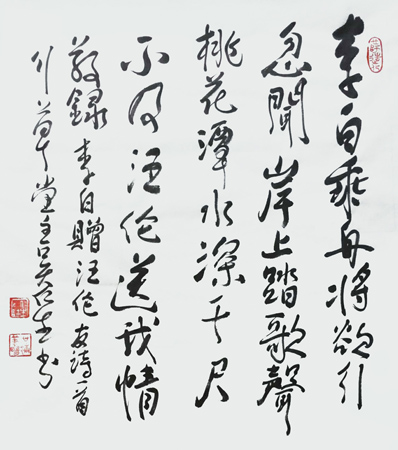 李白乘舟将欲行
忽聞岸上踏歌聲
桃花潭水深千尺
不及汪伦送我情
敬録李白贈汪伦友詩一首
行草堂主书